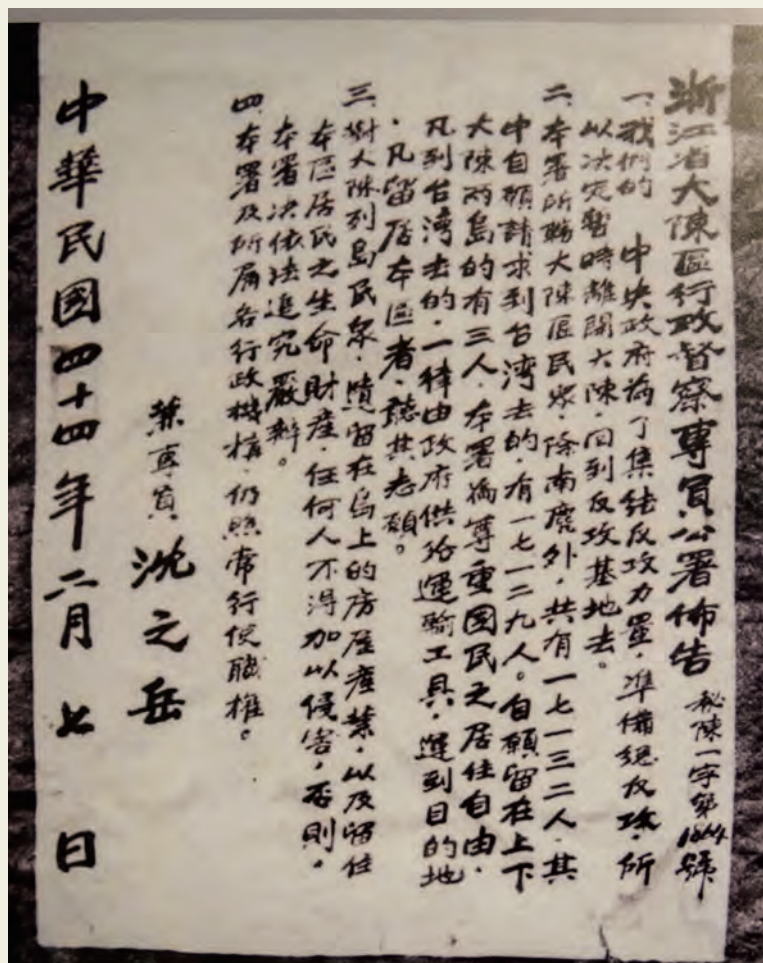 浙江省大陳區行政督察專員公署佈告
秘陳一字第1864號
一、我們的　中央政府為了集結反攻力量，準備總反攻，所
以決定暫時離開大陳，回到反攻基地去。
二、本署所轄大陳區民眾，除南麂外，共有一七一三二人，其
中自願請求到台灣去的，有一七一二九人。自願留在上下
大陳兩島的有三人，本署為尊重國民之居住自由，
凡到台灣去的，一律由政府供給運輸工具，運到目的地
，凡留居本區者，聽其志願。
三、對大陳列島民眾，遺留在島上的房屋產業，以及留住
本區居民之生命財產，任何人不得加以侵害，否則，
本署決依法追究嚴辦。
四、本署及所屬各行政機構，仍照常行使職權。
兼專員 沈之岳
中華民國四十四年二月七日